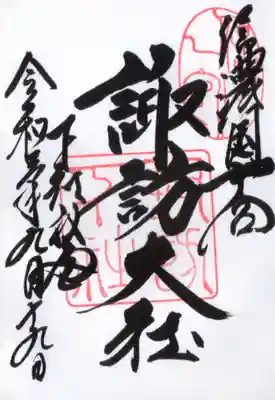 信濃國一宮
諏訪大社
下社秋宮
令和 年九月十九日